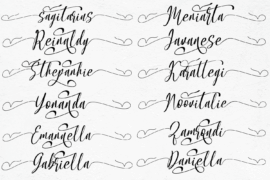 Sagitarius
Reinaldy
Sthepankie
Yonanda
Emannella
Gabriella
Meniarta
Javanese
Karallegi
Noovitalie
Zamrondi
Daniella